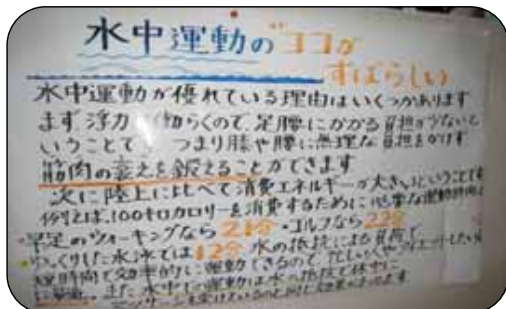 水中運動の"ココが
すばらしい
水中運動が優れている理由はいくつかあります
まず浮力が働らくので、足腰にかかる負担が少ないと
いうことです。つまり膝や腰に無理な負担をかけず
筋肉の衰えを鍛えることができます
次に陸上に比べて消費エネルギーが大きいということです
例えば、100キロカロリーを消費するために必要な運動時間は
早足のウォーキングなら21分・ゴルフなら22分
ゆっくりした水泳では12分 水の抵抗による負荷で
短時間で効率的に運動できるので、忙しい
また水中での運動は水の抵抗で体中に
マッサージを受けているのと同じ効果があります